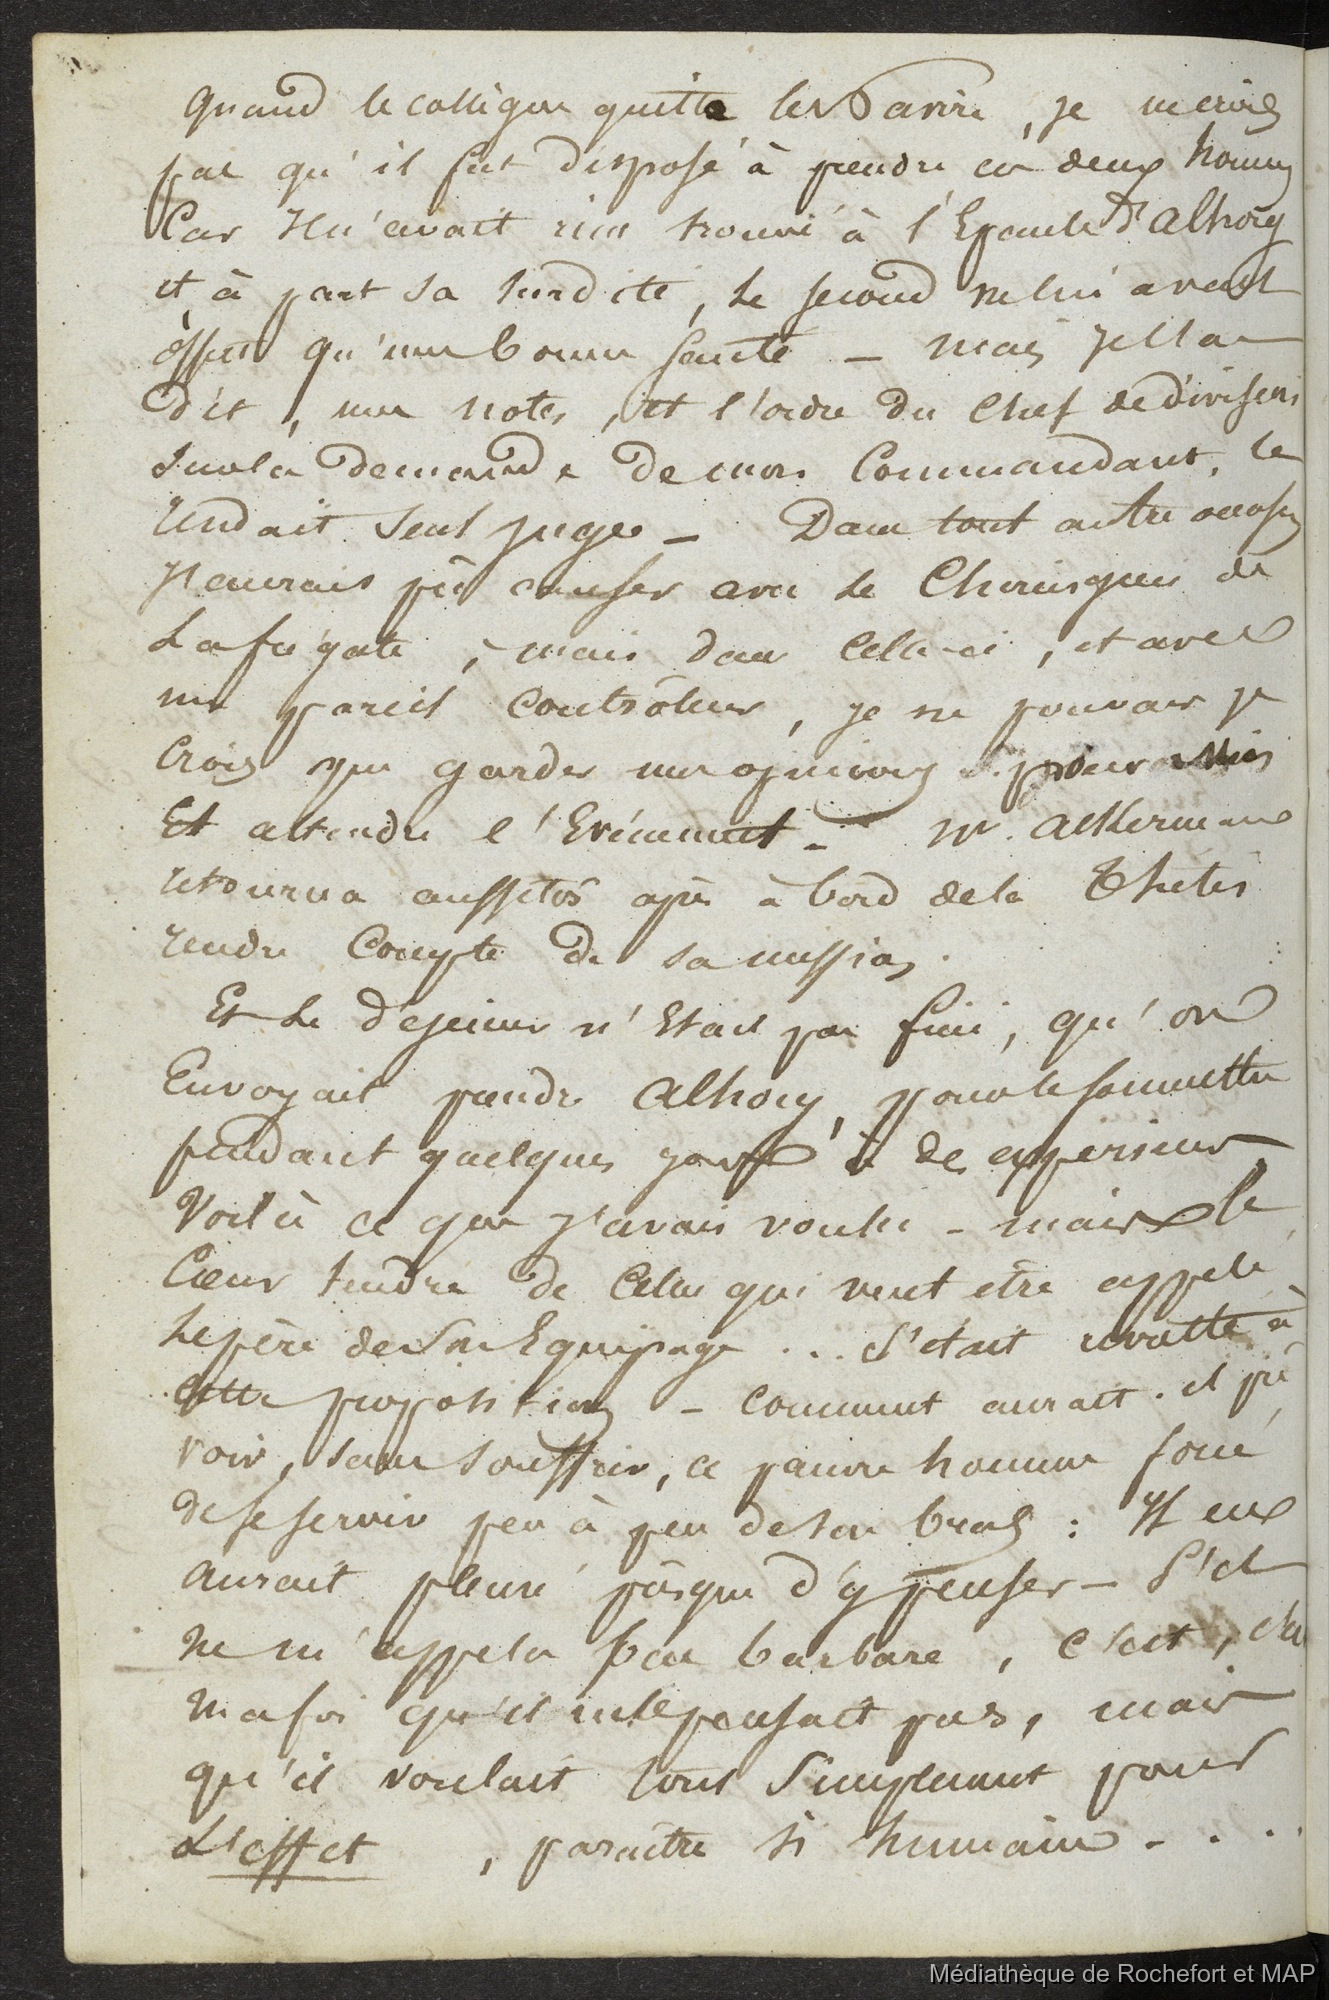 Quand le collègue quitta le Navire, je ne crois
pas qu'il fut disposé à prendre ces deux hommes
Car Il n'avait rien trouvé à l'Epaule d'Alhoïy
et à part sa surdité, le second ne lui avait
offert qu'une bonne santé _ Mais Je l'ai
dit, mes notes, et l'ordre du Chef de division
sur la demande de mon Commandant, le
rendait seul juge _ Dans tout autre occasion
J'aurais pû causer avec le Chirurgien de
La frégate, mais dans celle-ci, et avec
un pareil Contrôleur, je ne pouvais je
Crois que garder mes opinions pour moi
Et attendre l'Evénement _ Mr. Akermann
retourna aussitôt après à bord de la Thétis
rendre Compte de sa mission.
Et le déjeuner n'Etait pas fini, qu'on
Envoyait prendre Alhoiy, pour le soumettre
pendant quelques jours à des expériences
Voilà ce que j'avais voulu _ mais le
Cœur tendre de Celui qui veut être appelé
le père de son Equipage ... s'était révolté à
cette proposition _ comment aurait-il pû
voir, sans souffrir, ce pauvre homme forcé
de se servir peu à peu de son bras : Il en
aurait pleuré presque d'y penser _ S'il
ne m'appela pas barbare, c'est,
ma foi qu'il ne le pensait pas, mais
qu'il voulait tout simplement pour
L'effet, paraître si humain _ . .
Médiathèque de Rochefort et MAP